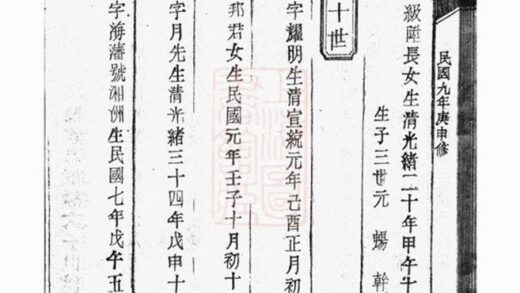 民國九年庚申修
級陞長女生清光緒二十年甲午十
生子三世元 暢 幹
十世
字耀明生清宣統元年己酉正月初
邦君女生民國元年壬子十月初十
字月先生清光緒三十四年戊申十
字海藩號湘洲生民國七年戊午五